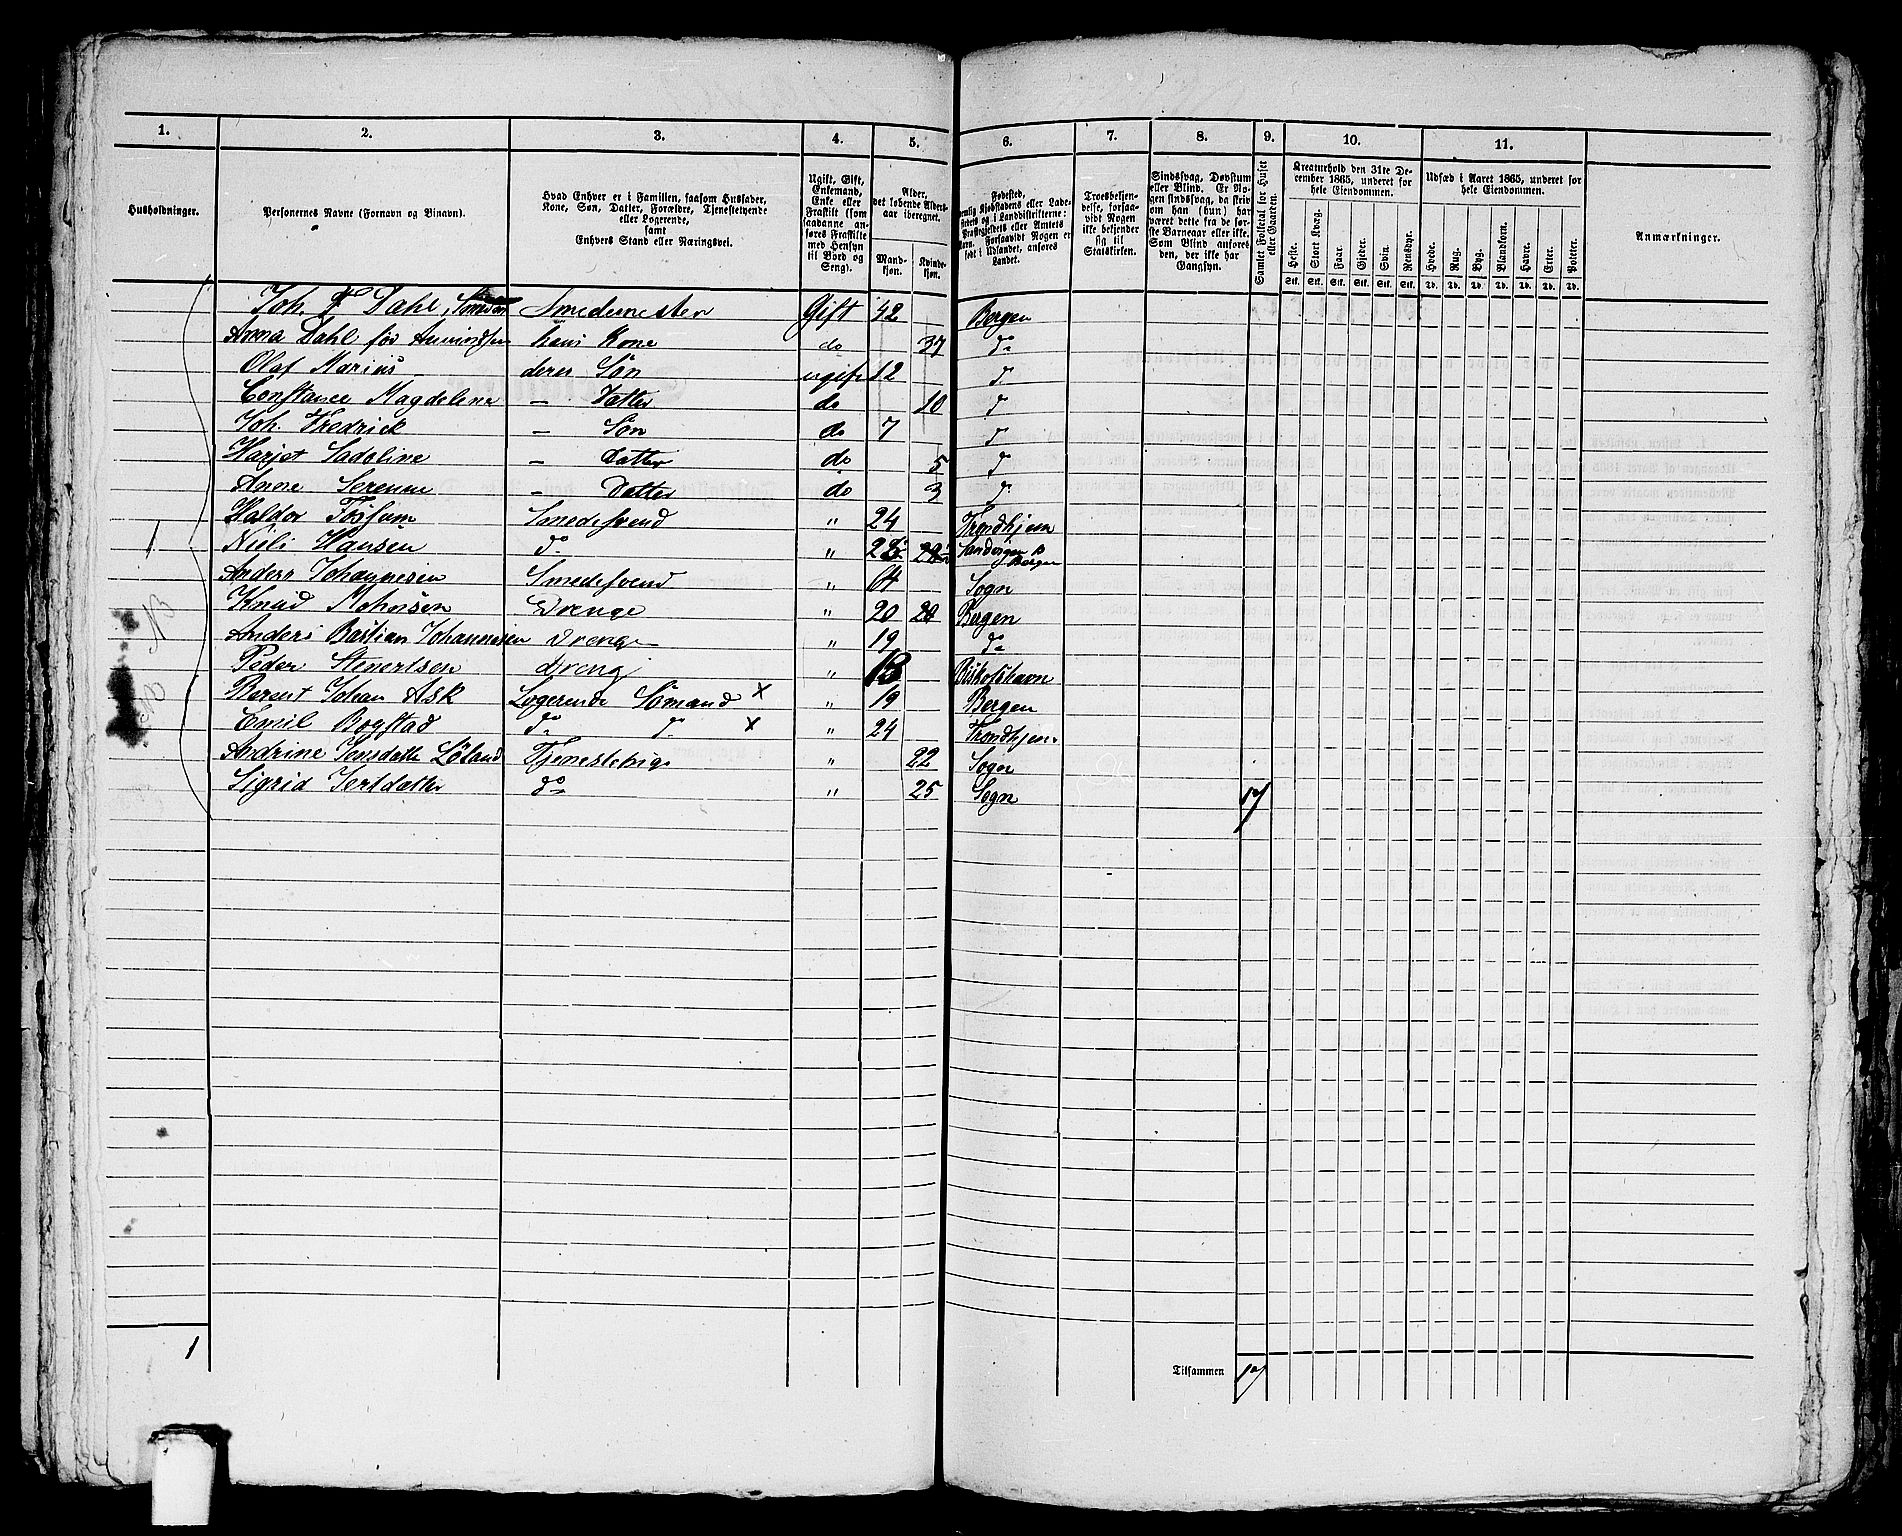 1. 2. 3. 4. 5. 6. 7. 8. 9. 10. 11.
Husholdninger.
Personernes Navne (Fornavn og Binavn).
Hvad Enhver er i Familien, saasom Husfader, Kone, Søn, Datter, Forældre, Tjenestetyende eller Logerende, samt Enhvers Stand eller Næringsvei.
Ugift, Gift, Enkemand, Enke eller Fraskilt (som saadanne anføres Fraskilte med Hensyn til Bord og Seng).
Alder, det løbende Alders-aar iberegnet.
Mand-kjøn. Kvinde-kjøn.
Fødested, Kjøbstadens eller Lade-stedets og i Landdistrikterne: Præstegjeldets eller Amtets Navn. Forsaavidt Nogen er født i Udlandet, anføres Landet.
Troesbekjen-delse, forsaa-vidt Nogen ikke bekjender sig til Statskirken.
Sindssvag, Døvstum eller Blind. Er No-gen sindssvag, da skriv om han (hun) har været dette fra de før-ste Barneaar eller ikke. Som Blind anføres den, der ikke har Gangsyn.
Samlet Folketal for Huset eller Gaarden.
Kreaturhold den 31te De-cember 1865, underet for hele Eiendommen.
Heste. Stort Kvæg. Faar. Gjeder. Svin. Rensdyr.
Stk. Stk. Stk. Stk. Stk. Stk.
Udsæd i Aaret 1865, underet for hele Eiendommen.
Hvede. Rug. Byg. Blandkorn. Havre. Erter. Poteter.
Td. Td. Td. Td. Td. Td. Td.
Anmærkninger.
Joh. F Dahl, Smedemester Gift 42 Bergen
Anna Dahl før Amundsen hans Kone do 37 do
Olaf Marius deres Søn ugift 12 d
Constance Magdelena – Datter do 10 d
Joh. Fredrick – Søn do 7 d
Harjet Sadoline – Datter do 5 d
Anne Serenne – Datter do 3 d
Haldor Fosfum Smedesvend " 24 Trondhjem
1 Niels Hansen do " Bergen
Anders Johannesen Smedesvend " Sogn
Knud Mohnsen Drenge " 20 20 Bergen
Anders Bastian Johannessen Dreng " 19 do
Peder Stenertsen dreng " 18 Biskofshavn
Berent Johan Ask Logerende Sømand × " 19 Bergen
Emil Bogstad do d × " 24 Trondhjem
Andrine Jensdatter Löland Tjenestepige " 22 Sogn
Sigrid Jertdatter do " 25 Sogn 17
1 Tilsammen 17